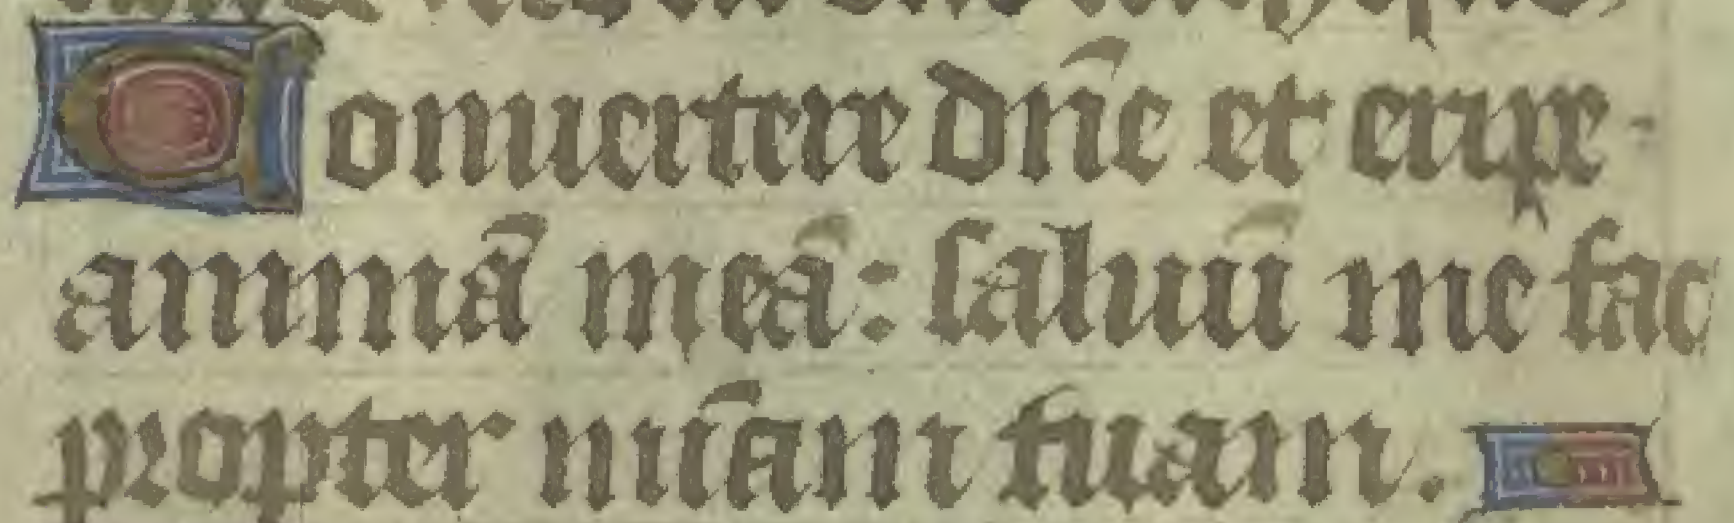 Conuertere dn̄e et eripe
animā meā: saluū me fac
propter mīam tuam.